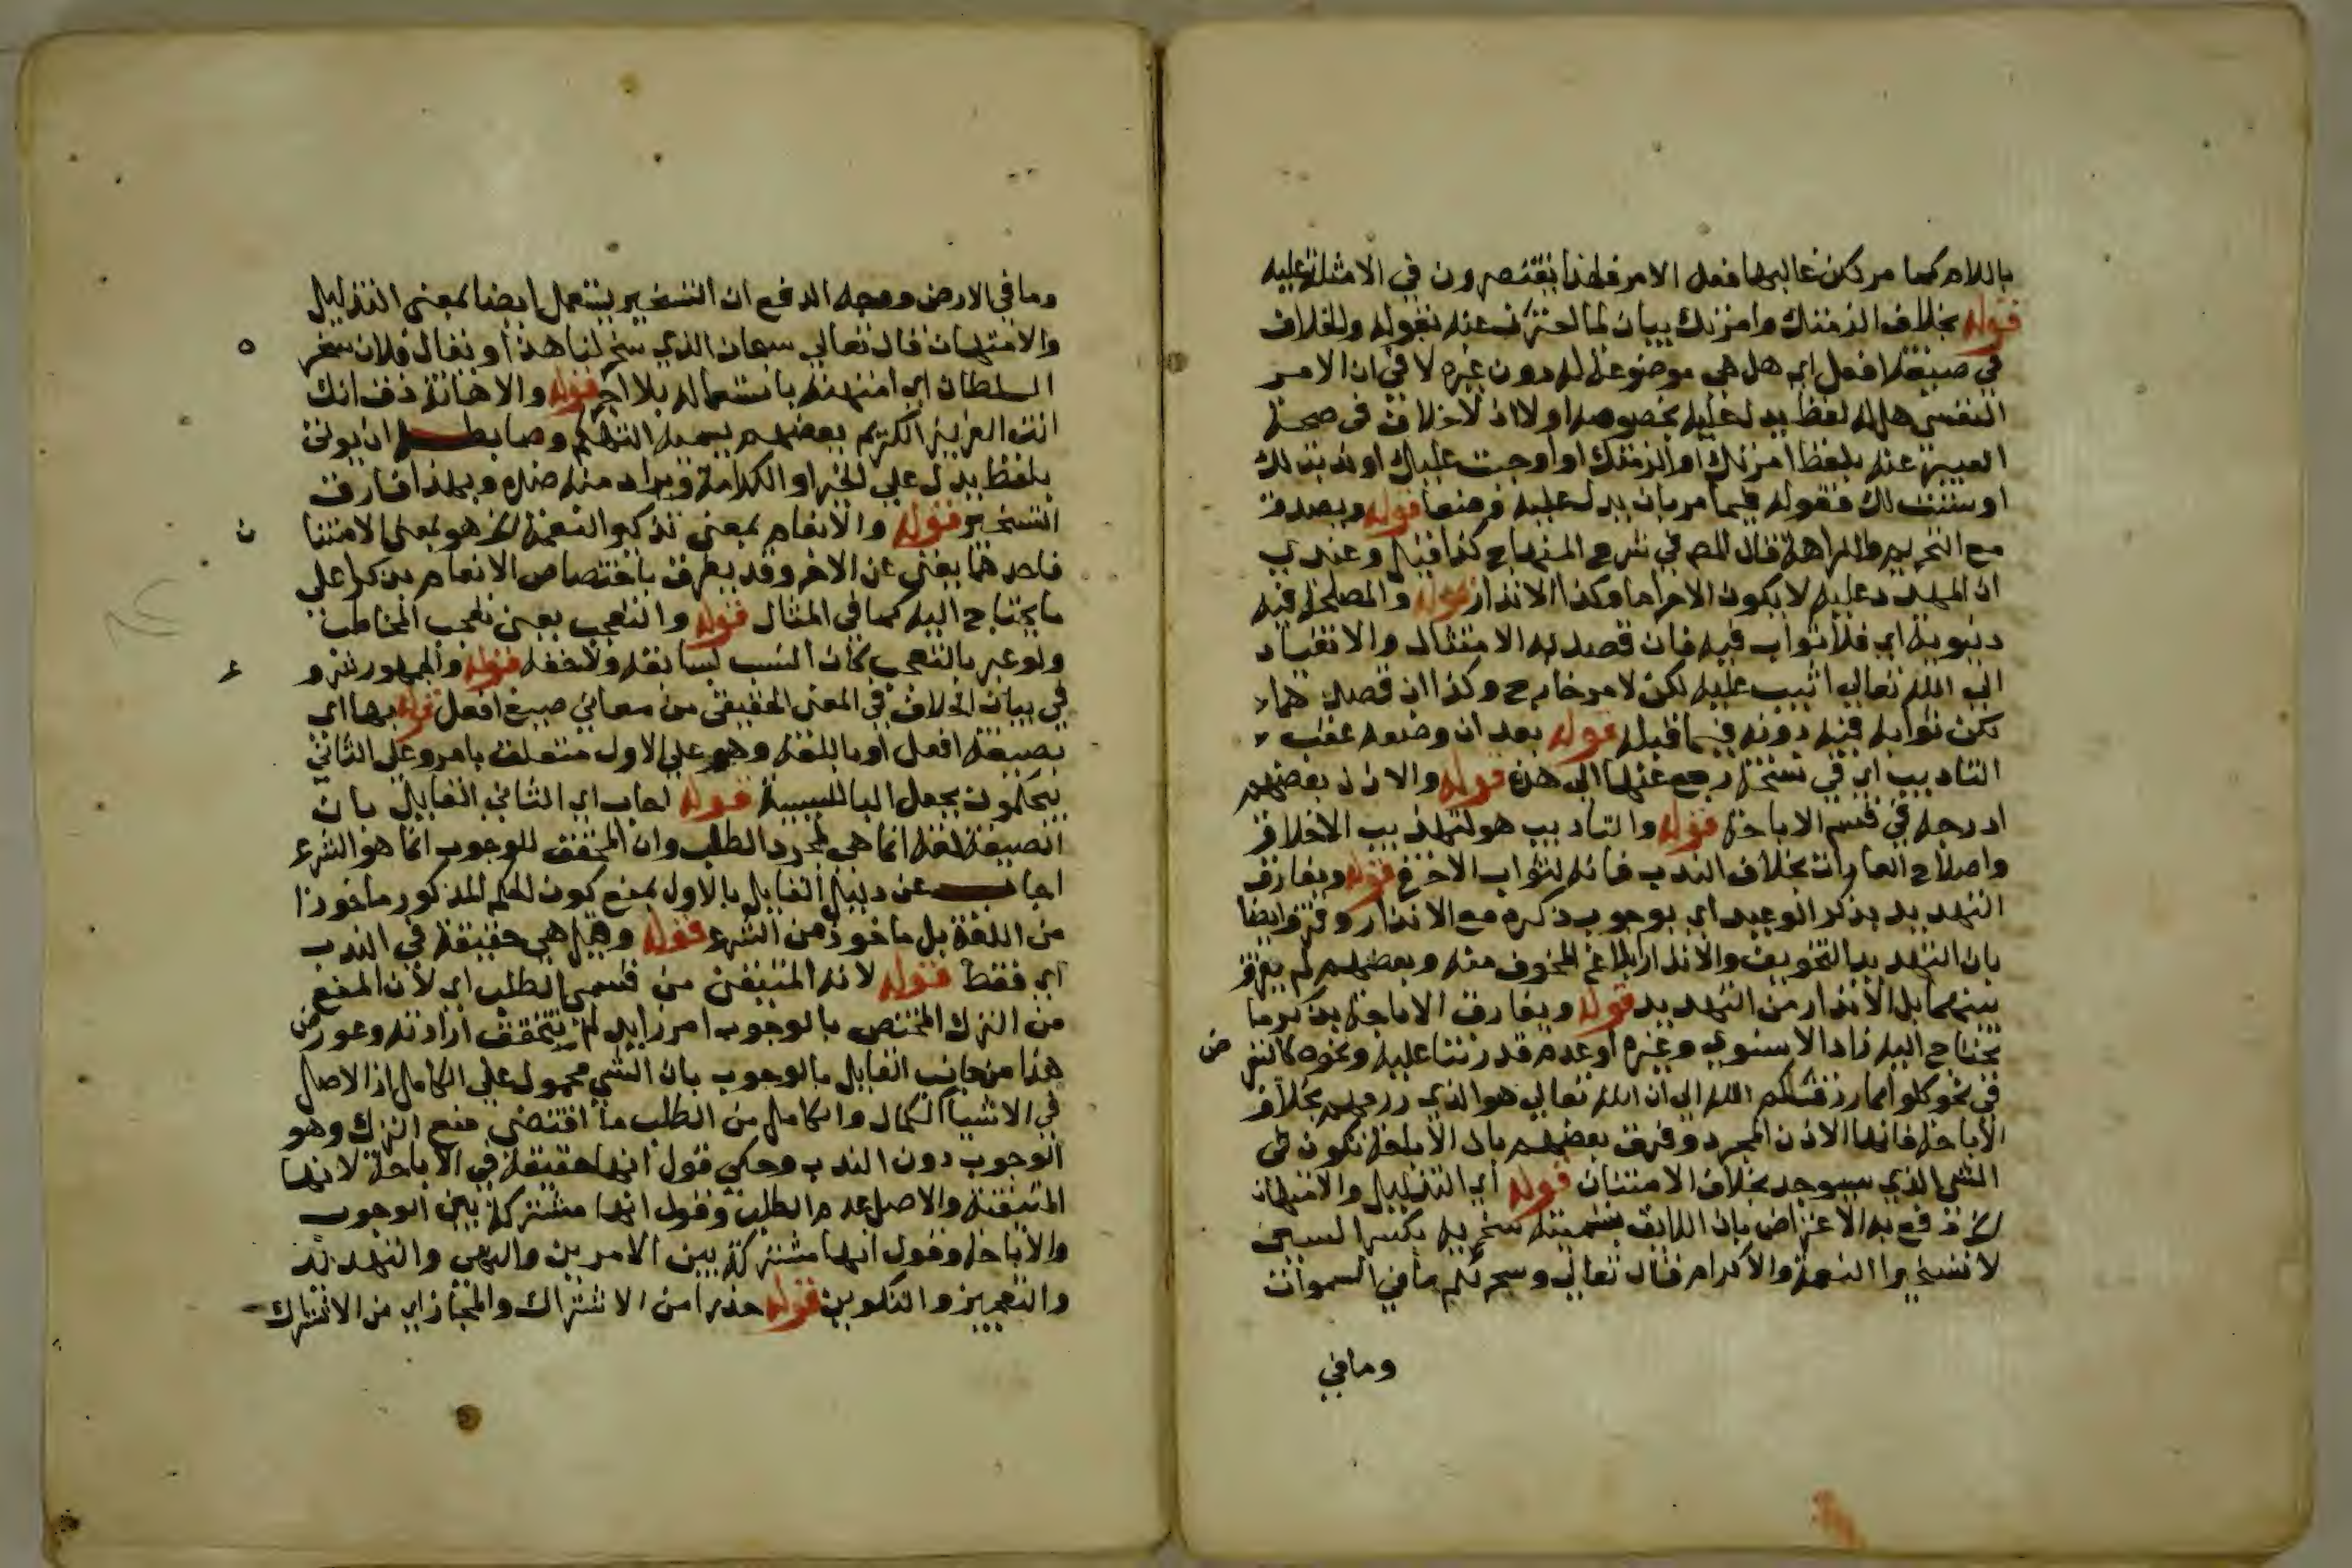 باللام كما مر لكن غالبها فعل الامر فلهذا يقتصرون في الامثلة عليه
قوله بخلاف الزمتك وامرتك بيان لما احترز عنه بقوله والخلاف
في صيغة افعل اي هل هي موضوعة له دون غيره لا في ان الامر
النفسي هل له لفظ يدل عليه بخصوصه اولا اذ لا خلاف في صحة
التعبير عنه بلفظ امرتك او الزمتك او اوجبت عليك او ندبت لك
او سننت لك فقوله فيما مر بان يدل عليه وضعا قوله ويصدق
مع التحريم والكراهة قال المص في شرح المنهاج كذا قيل وعندي
ان المهدد عليه لا يكون الا حراما وكذا الانذار قوله والمصلحة فيه
دنيوية اي فلا ثواب فيه فان قصد به الامتثال والانقياد
الى الله تعالى اثيب عليه لكن لامر خارج وكذا ان قصدهما
لكن ثوابه فيه دونه فيما قبله قوله بعد ان وضعه عقب
التاديب اي في نسخة رجع عنها الى هذه قوله والاذن بعضهم
ادرجه في قسم الاباحة قوله والتاديب هو لتهذيب الاخلاق
واصلاح العادات بخلاف الندب فانه لثواب الاخرة قوله ويفارق
التهديد بذكر الوعيد اي بوجوب ذكره مع الانذار وفرق ايضا
بان التهديد التخويف والانذار ابلاغ المخوف منه وبعضهم لم يفرق
بينهما بل الانذار من التهديد قوله ويفارق الاباحة بذكر ما
يحتاج اليه زاد الاسنوي وغيره او عدم قدرتنا عليه ونحوه كالتعرض
في نحو كلوا مما رزقكم الله الى ان الله تعالى هو الذي رزقهم بخلاف
الاباحة فانها الاذن المجرد وفرق بعضهم بان الاباحة تكون في
الشي الذي سيوجد بخلاف الامتنان قوله اي التذليل والامتهان
الخ دفع به الاعتراض بان اللائق تسميته سخرية بكسر السين
لا تسخيرا النعمة والاكرام قال تعالى وسخر لكم ما في السموات
وما في
وما في الارض ووجه الدفع ان التسخير يستعمل ايضا بمعنى التذليل
والامتهان قال تعالى سبحان الذي سخر لنا هذا ويقال فلان سخره
السلطان اي امتهنه باستعماله بلا اجر قوله والاهانة ذق انك
انت العزيز الكريم بعضهم يسميه التهكم وضابطه ان يوتى
بلفظ يدل على الخير او الكرامة ويراد منه ضده وبهذا فارق
التسخير قوله والانعام بمعنى تذكير النعمة الخ هو بمعنى الامتنان
فاحدهما يغني عن الاخر وقد يفرق باختصاص الانعام بذكر اعلى
ما يحتاج اليه كما في المثال قوله والتعجب بمعنى تعجب المخاطب
ولو عبر بالتعجيب كان انسب لسابقه ولاحقه قوله والجمهور شروع
في بيان الخلاف في المعنى الحقيقي من معاني صيغة افعل قوله بها اي
بصيغة افعل او باللغة وهو على الاول متعلق بامر وعلى الثاني
يحكمون بجعل البا للسببية قوله اجاب اي الثاني القايل بان
الصيغة لغة انما هي لمجرد الطلب وان المحقق للوجوب انما هو الشرع
اجاب عن دليل القايل بالاول بمنع كون الحكم المذكور ماخوذا
من اللغة بل ماخوذ من الشرع قوله وقيل هي حقيقة في الندب
اي فقط قوله لانه المتيقن من قسمي الطلب اي لان المنع
من الترك المختص بالوجوب امر زايد لم يتحقق ارادته وعورض
هذا من جانب القايل بالوجوب بان الشي محمول على الكامل اذ الاصل
في الاشيا الكمال والكامل من الطلب ما اقتضى منع الترك وهو
الوجوب دون الندب وحكي قول انها حقيقة في الاباحة لانها
المتيقنة والاصل عدم الطلب وقول انها مشتركة بين الوجوب
والاباحة وقول انها مشتركة بين الامرين والنهي والتهديد
والتعجيز والتكوين قوله حذرا من الاشتراك والمجاز اي من الاشتراك